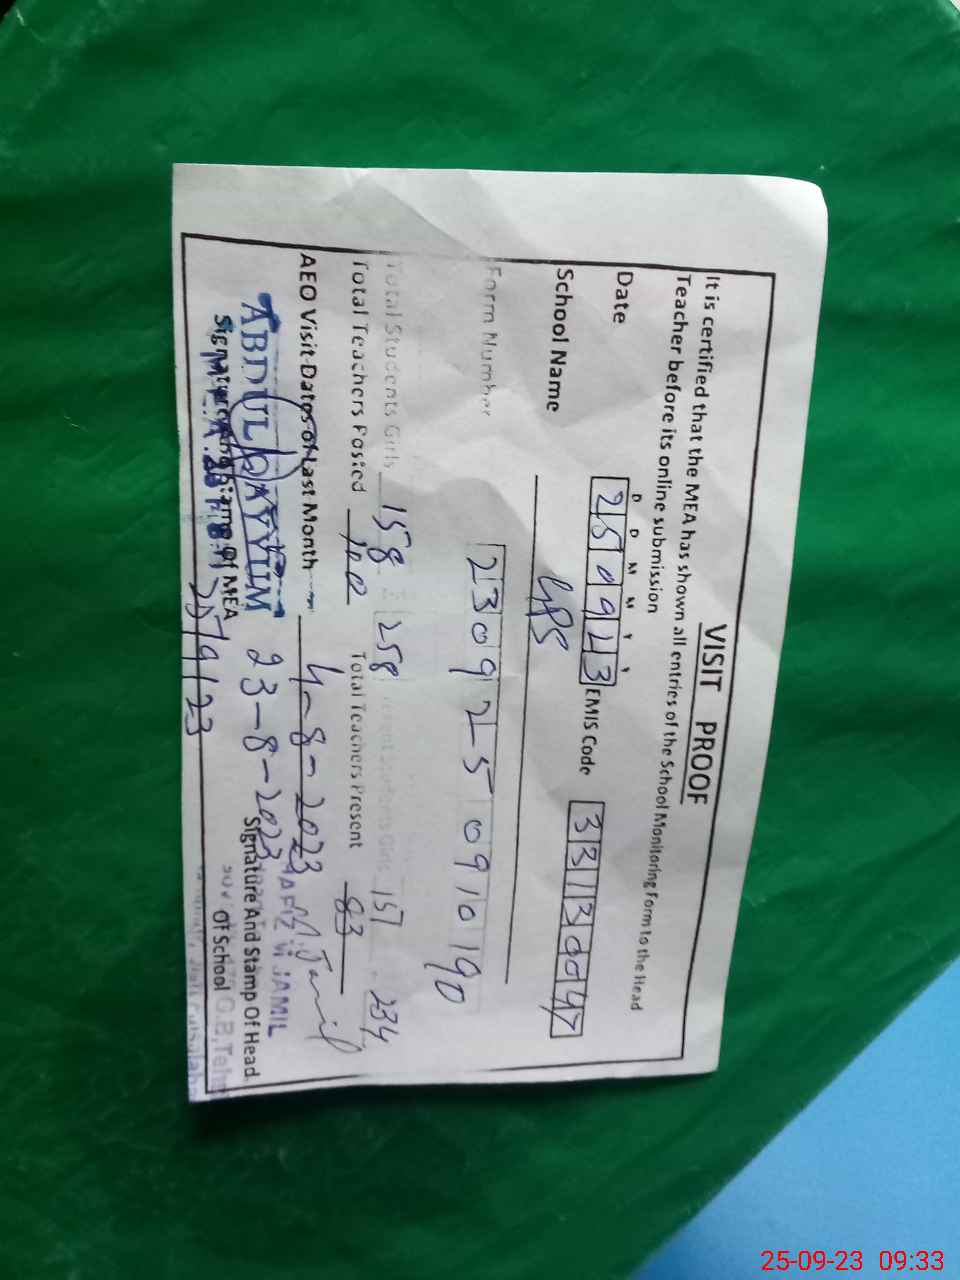 VISIT PROOF
It is certified that the MEA has shown all entries of the School Monitoring Form to the Head
Teacher before its online submission
D D M M Y Y
Date 250923 EMIS Code 33130047
School Name GPS
Form Number 230925 0910190
Total Students Girls 158 258 Girls 151 234
Total Teachers Posted Total Teachers Present
AEO Visit Dates of Last Month 4-8-2023
23-8-2023
ABDUL QAYYUM JAMIL
Signature And Stamp Of MEA Signature And Stamp Of Head
Of School
25/9/23
G.B, Teh
25-09-23 09:33